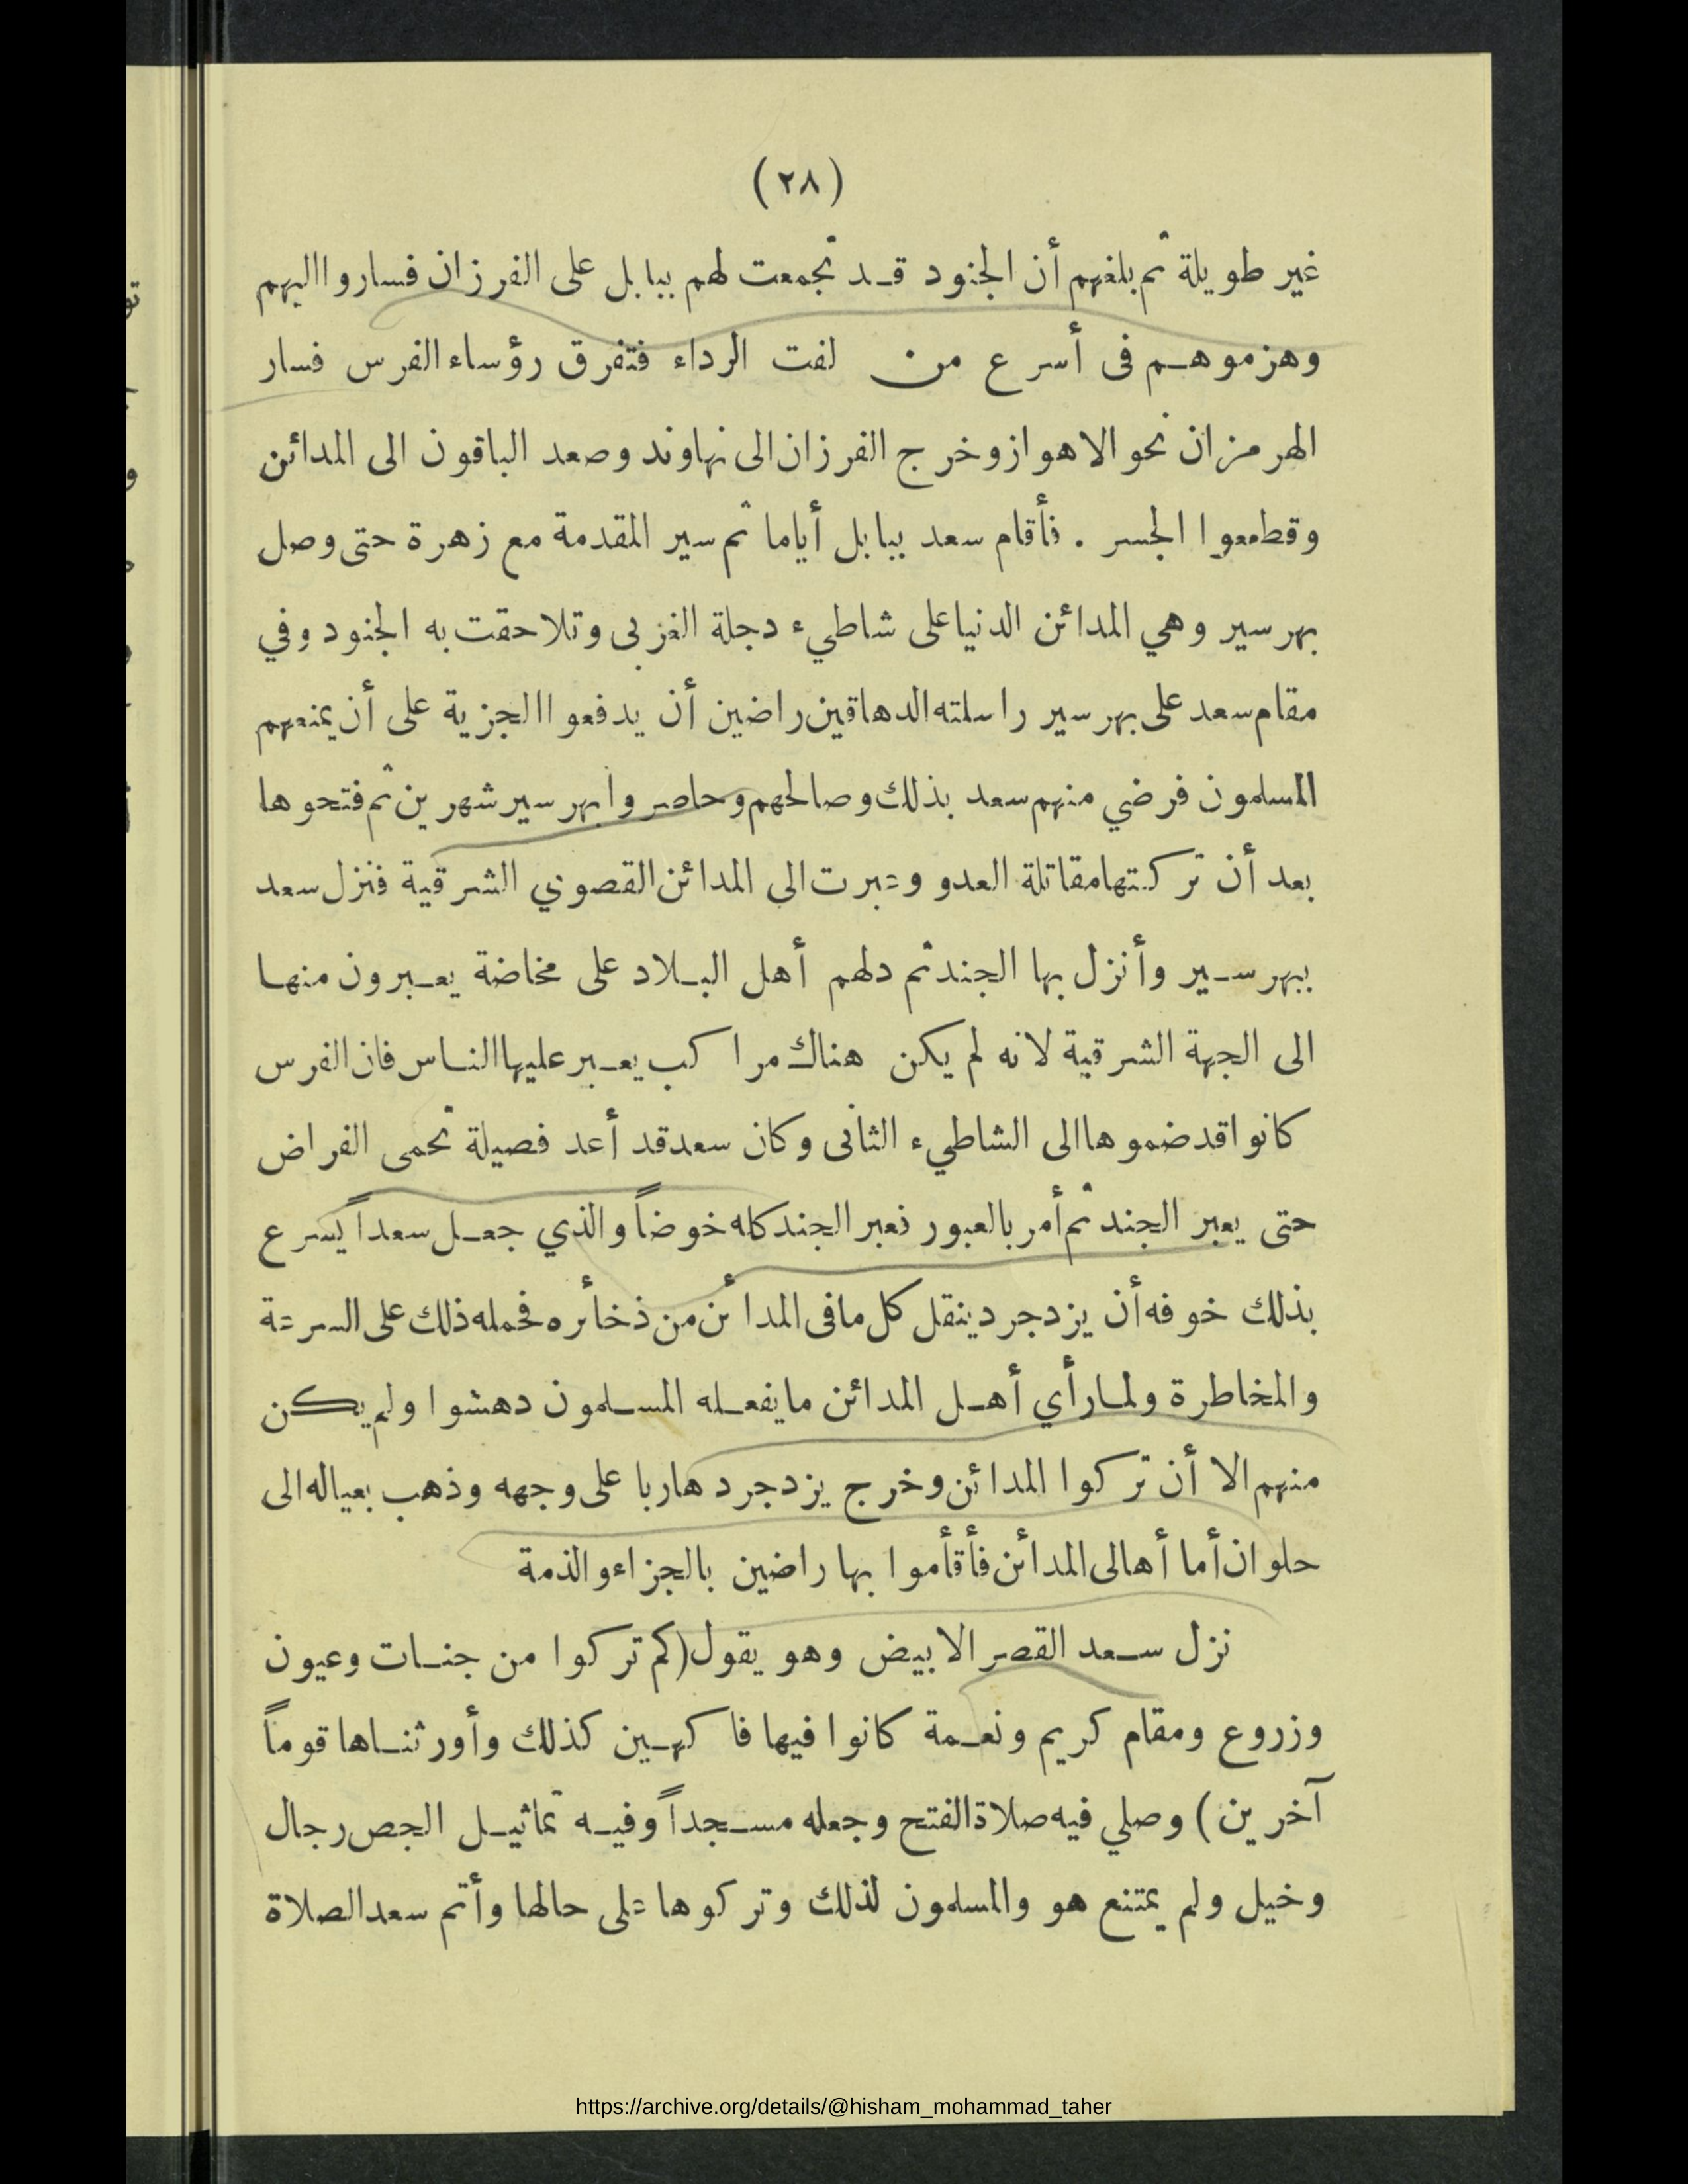 (٢٨)
غير طويلة ثم بلغهم أن الجنود قد تجمعت لهم ببابل على الفرزان فساروا اليهم
وهزموهم فى أسرع من لفت الرداء فتفرق رؤساء الفرس فسار
الهرمزان نحو الاهواز وخرج الفرزان الى نهاوند وصعد الباقون الى المدائن
وقطعوا الجسر . فأقام سعد ببابل أياما ثم سير المقدمة مع زهرة حتى وصل
بهرسير وهي المدائن الدنيا على شاطيء دجلة الغربى وتلاحقت به الجنود وفي
مقام سعد على بهرسير راسلته الدهاقين راضين أن يدفعوا الجزية على أن يمنعهم
المسلمون فرضي منهم سعد بذلك وصالحهم وحاصروا بهرسير شهرين ثم فتحوها
بعد أن تركتها مقاتلة العدو وعبرت الى المدائن القصوى الشرقية فنزل سعد
ببهرسير وأنزل بها الجند ثم دلهم أهل البلاد على مخاضة يعبرون منها
الى الجهة الشرقية لانه لم يكن هناك مراكب يعبر عليها الناس فان الفرس
كانوا قد ضموها الى الشاطيء الثانى وكان سعد قد أعد فصيلة تحمى الفراض
حتى يعبر الجند ثم أمر بالعبور فعبر الجند كله خوضاً والذي جعل سعداً يسرع
بذلك خوفه أن يزدجرد ينقل كل مافى المدائن من ذخأره فحمله ذلك على السرعة
والمخاطرة ولما رأي أهل المدائن ما يفعله المسلمون دهشوا ولم يكن
منهم الا أن تركوا المدائن وخرج يزدجرد هاربا على وجهه وذهب بعياله الى
حلوان أما أهالى المدائن فأقأموا بها راضين بالجزاء والذمة
نزل سعد القصر الابيض وهو يقول (كم تركوا من جنات وعيون
وزروع ومقام كريم ونعمة كانوا فيها فاكهين كذلك وأورثناها قوماً
آخرين) وصلي فيه صلاة الفتح وجعله مسجداً وفيه تماثيل الجص رجال
وخيل ولم يمتنع هو والمسلمون لذلك وتركوها على حالها وأتم سعد الصلاة
https://archive.org/details/@hisham_mohammad_taher